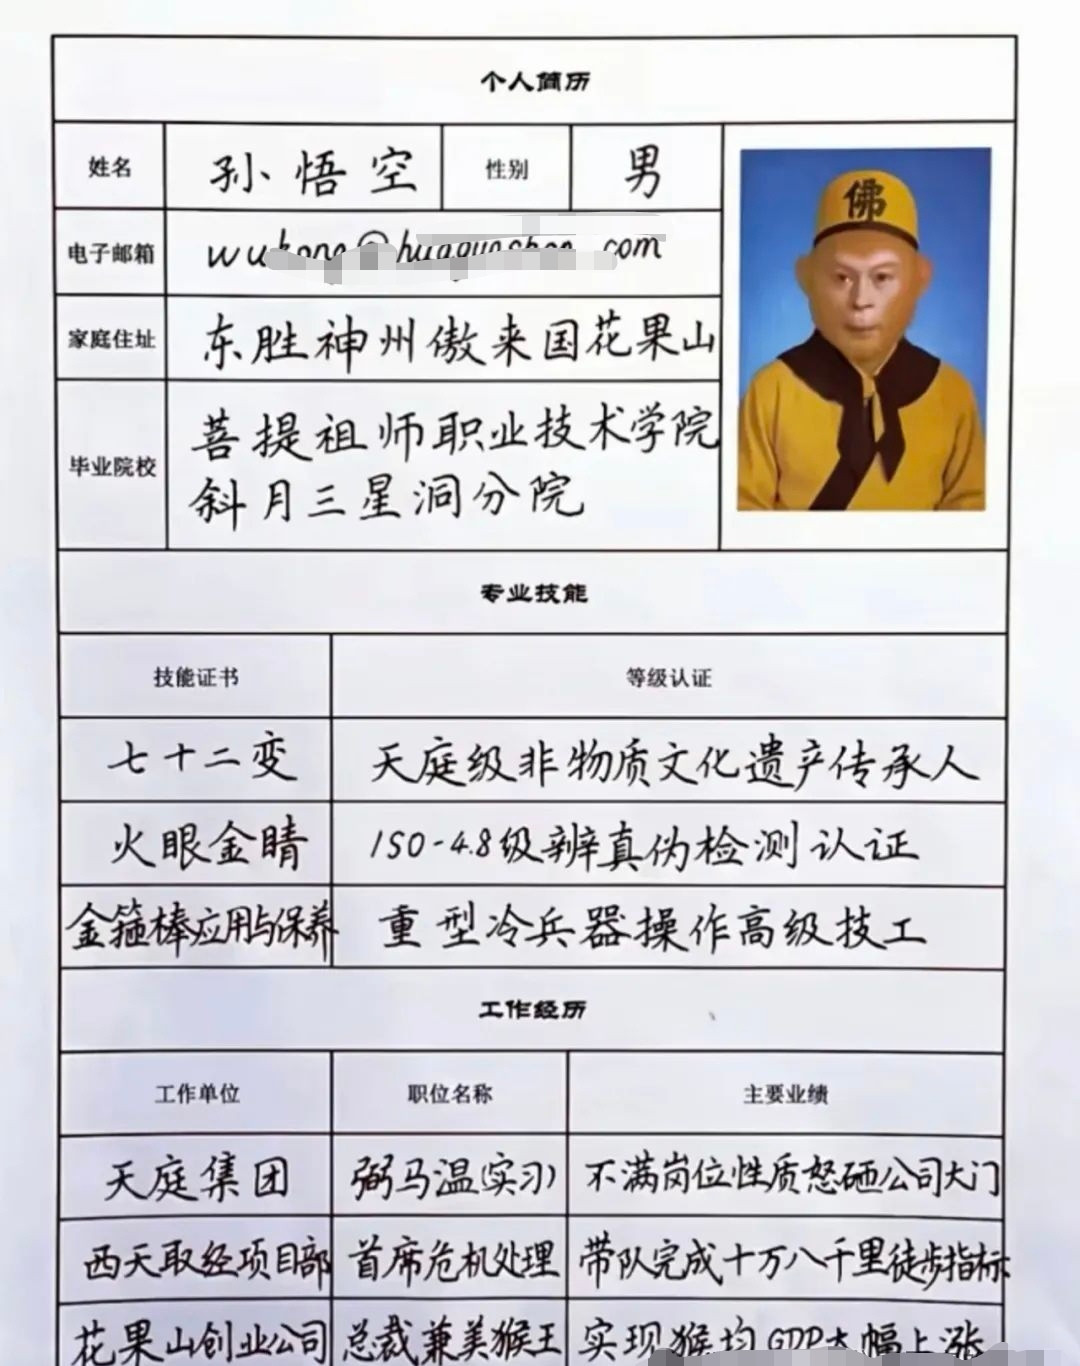 个人简历
姓名 孙悟空 性别 男
佛
电子邮箱
家庭住址 东胜神州傲来国花果山
毕业院校 菩提祖师职业技术学院
斜月三星洞分院
专业技能
技能证书 等级认证
七十二变 天庭级非物质文化遗产传承人
火眼金睛 ISO-4.8级辨真伪检测认证
金箍棒应用与保养 重型冷兵器操作高级技工
工作经历
工作单位 职位名称 主要业绩
天庭集团 弼马温(实习) 不满岗位性质怒砸公司大门
西天取经项目部 首席危机处理 带队完成十万八千里徒步指标
花果山创业公司 总裁兼美猴王 实现猴均GDP大幅上涨